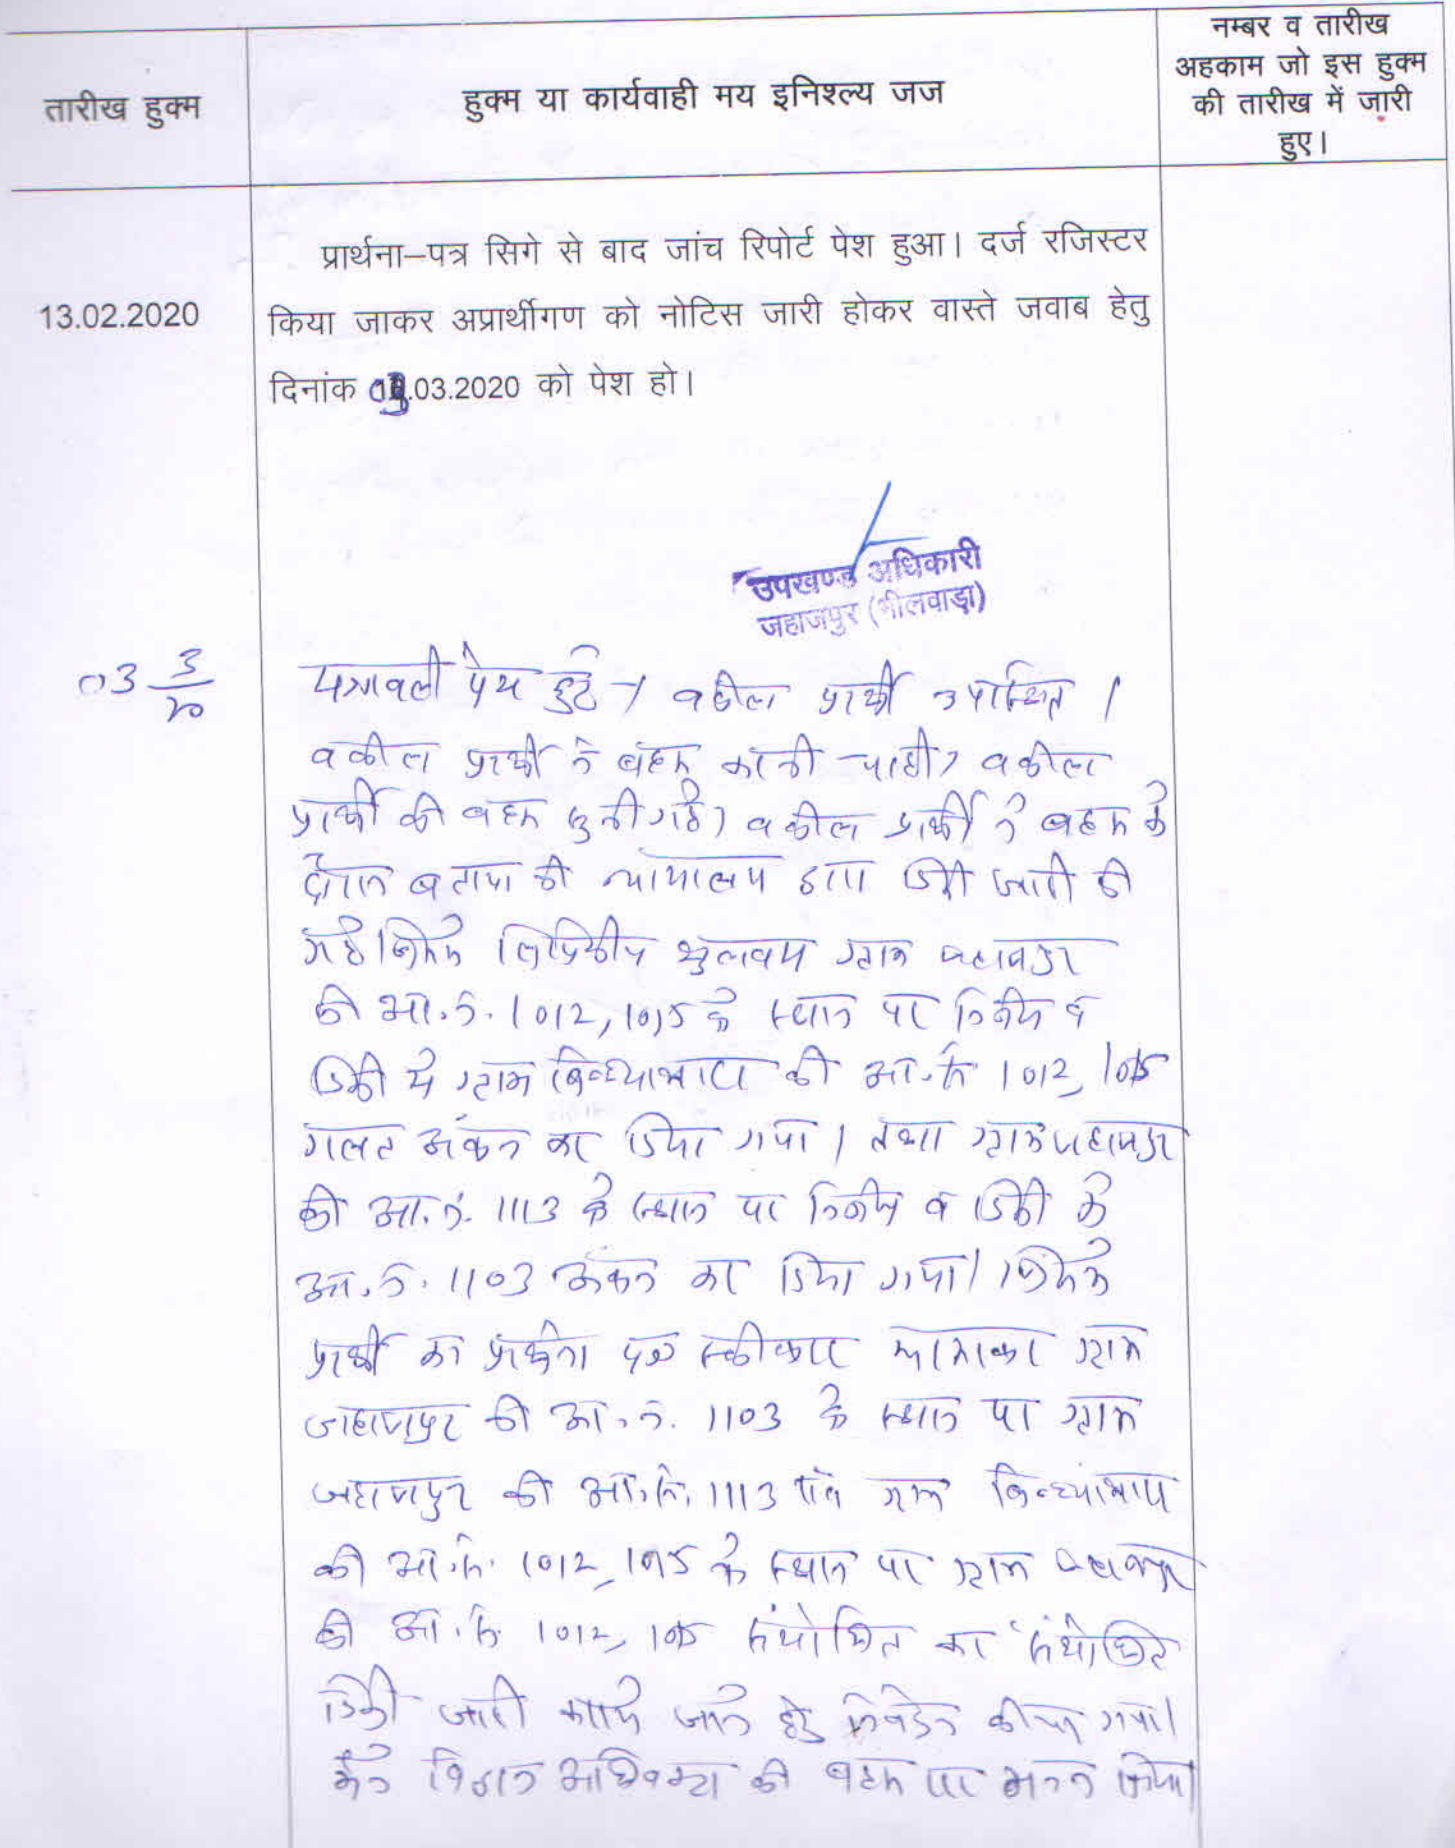 तारीख हुक्म
हुक्म या कार्यवाही मय इनिश्ल्य जज
नम्बर व तारीख
अहकाम जो इस हुक्म
की तारीख में जारी
हुए।
प्रार्थना–पत्र सिगे से बाद जांच रिपोर्ट पेश हुआ। दर्ज रजिस्टर
13.02.2020
किया जाकर अप्रार्थीगण को नोटिस जारी होकर वास्ते जवाब हेतु
दिनांक 03.03.2020 को पेश हो।
उपखण्ड अधिकारी
जहाजपुर (भीलवाड़ा)
03 3/20
पत्रावली पेश हुई। वकील प्रार्थी उपस्थित।
वकील प्रार्थी ने बहस करनी चाही। वकील
प्रार्थी की बहस सुनी गई। वकील प्रार्थी ने बहस के
दौरान बताया की न्यायालय द्वारा डिक्री जारी की
गई जिसमें लिपिकीय भुलवश ग्राम जहाजपुर
की आ.नं. 1012, 1015 के स्थान पर निर्णय व
डिक्री में ग्राम बिन्ध्याभाटा की आ.नं. 1012, 1015
गलत अंकन कर दिया गया। तथा ग्राम जहाजपुर
की आ.नं. 1113 के स्थान पर निर्णय व डिक्री में
आ.नं. 1103 अंकन कर दिया गया। जिससे
प्रार्थी का प्रार्थना पत्र स्वीकार फरमाकर ग्राम
जहाजपुर की आ.नं. 1103 के स्थान पर ग्राम
जहाजपुर की आ.नं. 1113 एवं ग्राम बिन्ध्याभाटा
की आ.नं. 1012, 1015 के स्थान पर ग्राम जहाजपुर
की आ.नं. 1012, 1015 संशोधित कर संशोधित
डिक्री जारी कराये जाने हेतु निवेदन कीया गया।
हमने विद्वान अधिवक्ता की बहस पर मनन किया।